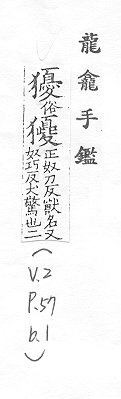 龍龕手鑑
獶俗獿正奴刀反獸名又
奴巧反犬驚也二
(V.2
P.57
b.1)